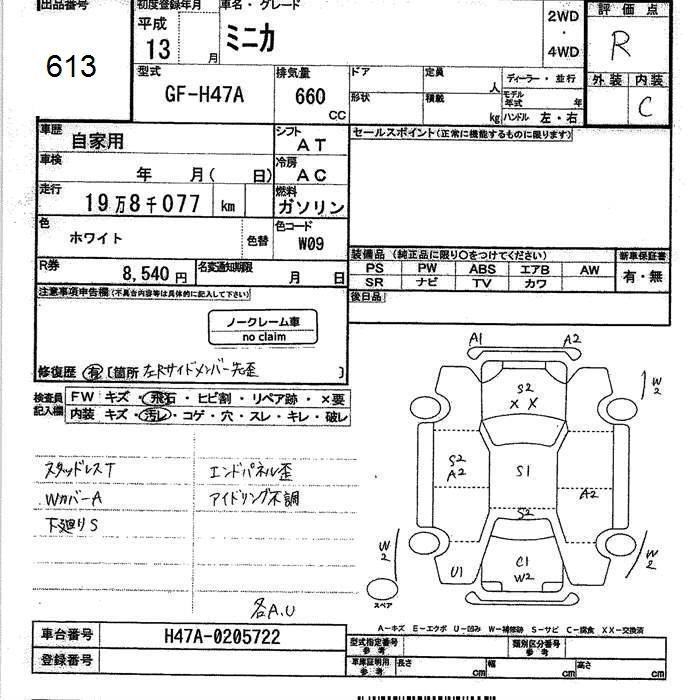 出品番号
613
初度登録年月
平成
13 月
車名・グレード
ミニカ
2WD
・
4WD
評価点
R
外装 内装
C
型式
GF-H47A
排気量
660
CC
ドア
定員
人
形状
積載
kg
ディーラー・並行
モデル
年式 年
ハンドル 左・右
車歴
自家用
シフト
AT
車検
年 月( 日)
冷房
AC
走行
19万8千077 km
燃料
ガソリン
色
ホワイト
色替
色コード
W09
R券
8,540 円
名変通知期限
月 日
セールスポイント(正常に機能するものに限ります)
装備品 (純正品に限り○をつけてください)
PS PW ABS エアB AW
SR ナビ TV カワ
新車保証書
有・無
後日品
注意事項申告欄(不具合内容等は具体的に記入して下さい)
ノークレーム車
no claim
修復歴 有 〔箇所 左Rサイドメンバー先歪 〕
検査員
記入欄
FW キズ・飛石・ヒビ割・リペア跡・×要
内装 キズ・汚レ・コゲ・穴・スレ・キレ・破レ
スタッドレスT
WカバーA
下廻りS
エンドパネル歪
アイドリング不調
各A.U
A1 A2
S2
X X
W2
S2
A2
S1
A2
S2
W2
U1
C1
W2
W2
スペア
A-キズ E-エクボ U-凹み W-補修跡 S-サビ C-腐食 XX-交換済
車台番号
H47A-0205722
登録番号
型式指定番号
参考
類別区分番号
参考
車庫証明用
参考
長さ cm
幅 cm
高さ cm